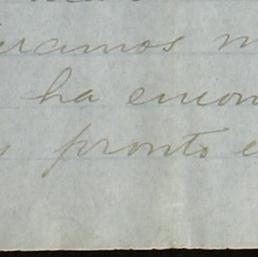 ramos m
ha encon
pronto e